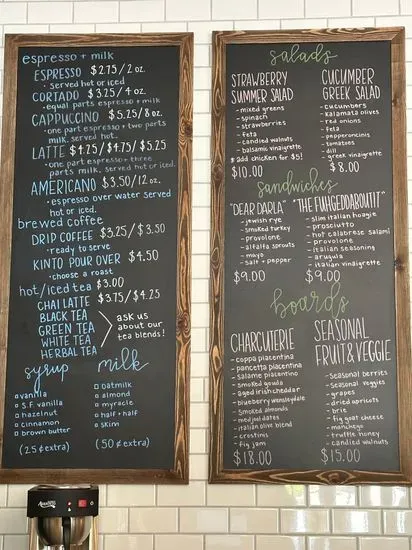 espresso + milk
ESPRESSO $2.75/2 oz.
• served hot or iced
CORTADO $3.25/4 oz.
• equal parts espresso + milk
CAPPUCCINO $5.25/8 oz.
• one part espresso + two parts
milk. served hot.
LATTE $4.25/$4.75/$5.25
• one part espresso + three
parts milk. served hot or iced.
AMERICANO $3.50/12 oz.
• espresso over water served
hot or iced.
brewed coffee
DRIP COFFEE $3.25/$3.50
• ready to serve
KINTO POUR OVER $4.50
• choose a roast
hot/iced tea $3.00
CHAI LATTE $3.75/$4.25
BLACK TEA
GREEN TEA
WHITE TEA
HERBAL TEA
ask us
about our
tea blends!
syrup
vanilla
S.F. vanilla
hazelnut
cinnamon
brown butter
(25¢ extra)
milk
oatmilk
almond
myracle
half + half
skim
(50¢ extra)
salads
STRAWBERRY
SUMMER SALAD
- mixed greens
- spinach
- strawberries
- feta
- candied walnuts
- balsamic vinaigrette
* add chicken for $5!
$10.00
CUCUMBER
GREEK SALAD
- cucumbers
- kalamata olives
- red onions
- feta
- pepperoncinis
- tomatoes
- dill
- greek vinaigrette
$8.00
sandwiches
"DEAR DARLA"
- jewish rye
- smoked turkey
- provolone
- alfalfa sprouts
- mayo
- salt + pepper
$9.00
"THE FUHGEDDABOUTIT"
- slim italian hoagie
- prosciutto
- hot calabrese salami
- provolone
- italian seasoning
- arugula
- italian vinaigrette
$9.00
boards
CHARCUTERIE
- coppa piacentina
- pancetta piacentina
- salame piacentino
- smoked gouda
- aged irish cheddar
- blueberry wensleydale
- smoked almonds
- medjool dates
- italian olive blend
- crostinis
- fig jam
$18.00
SEASONAL
FRUIT & VEGGIE
- seasonal berries
- seasonal veggies
- grapes
- dried apricots
- brie
- fig goat cheese
- manchego
- truffle honey
- candied walnuts
$15.00